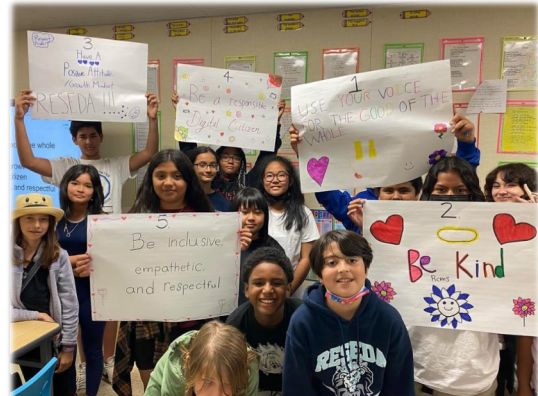 3
Have A
Positive Attitude
/Growth Mindset
RESEDA!!!
4
Be a responsive
Digital Citizen
1
USE YOUR VOICE
FOR THE GOOD OF THE
WHOLE
5
Be inclusive,
empathetic,
and respectful
2
Be Kind
RESEDA